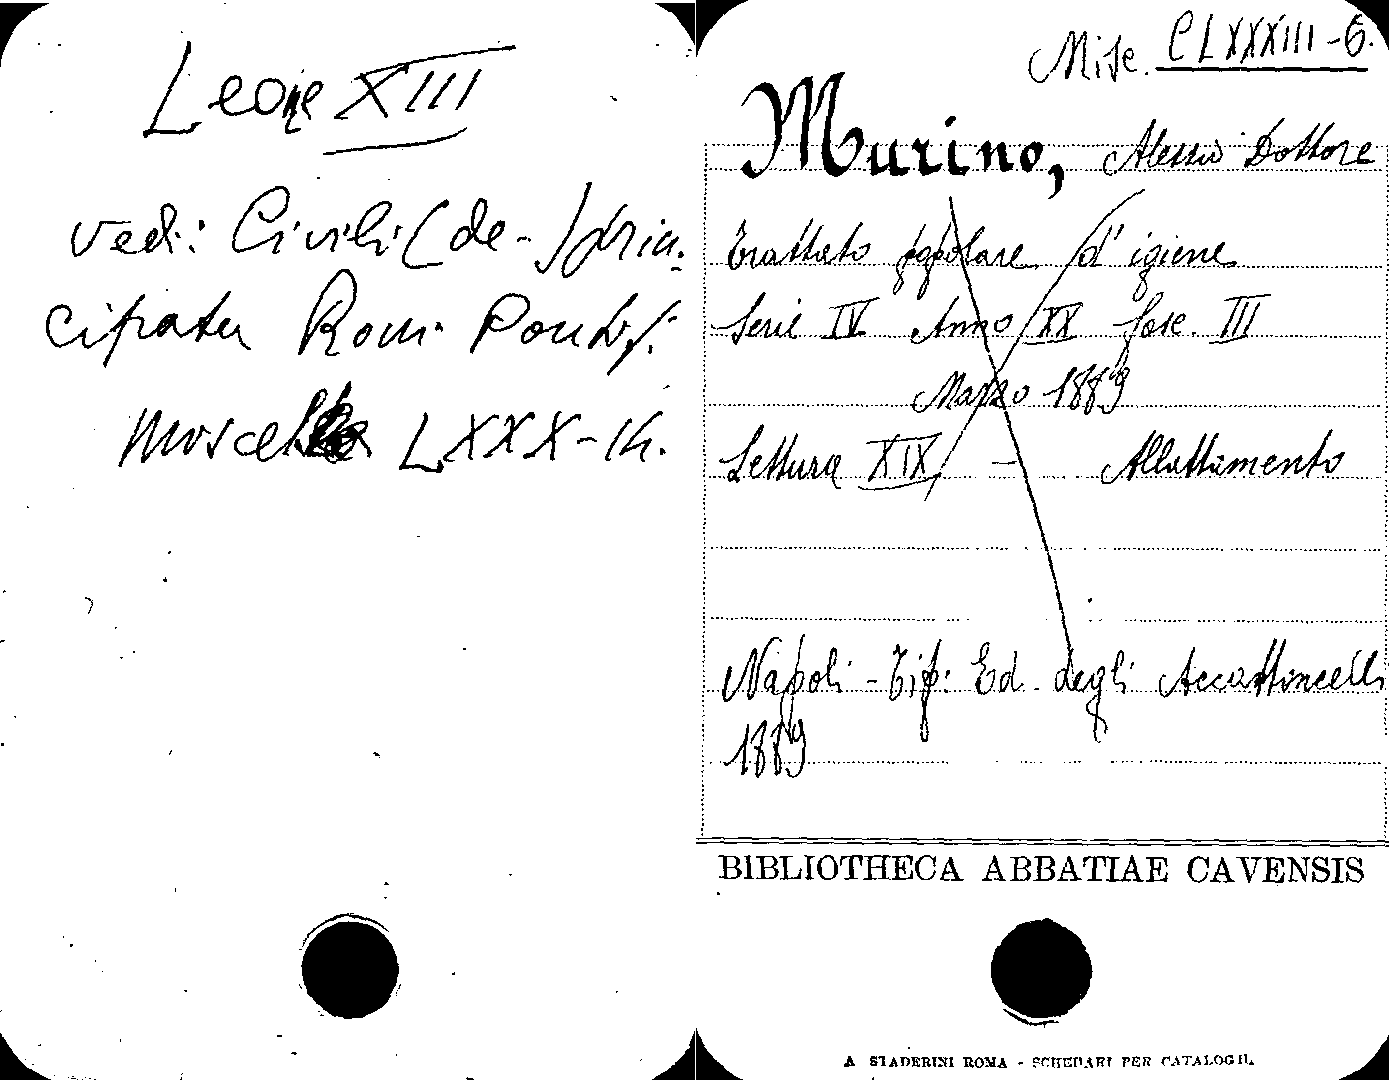 Leone XIII
vedi: Civili (de-) prin-
cipatu Rom. Pontif.
LXXX-14.
Misc. CLXXXIII-6.
Murino, Alessio Dottore
Trattato popolare d'igiene
Serie IV Anno XX Fasc. III
Marzo 1889
Lettura XIX - Allattamento
Napoli - Tip: Ed. degli Accattoncelli
1889
BIBLIOTHECA ABBATIAE CAVENSIS
A STADERINI ROMA - SCHEDARI PER CATALOGHI.